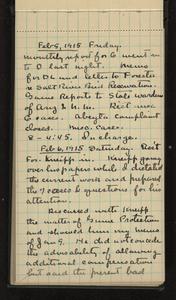 Feb 5, 1915 Friday.
Monthly report for 6 went in
to D last night. Memo
for DL and letter to Forester
re Salt River Bird Reservation.
Game Reports to State wardens
of Ariz & N.M. Rec't misc
G cases. Abeyta complaint
closed. Misc. Cases.
8 - 4:45. In charge.
Feb 6, 1915 Saturday. Rec't
For. Kneipp in. Kneipp going
over his papers while I dictated
the current work and prepared
the 7 cases & questions for his
attention.
Discussed with Kneipp
the matter of Game Protection
and showed him my memo
of Jan 9. He did not concede
the advisability of allowing
additional compensation
but said the present bad